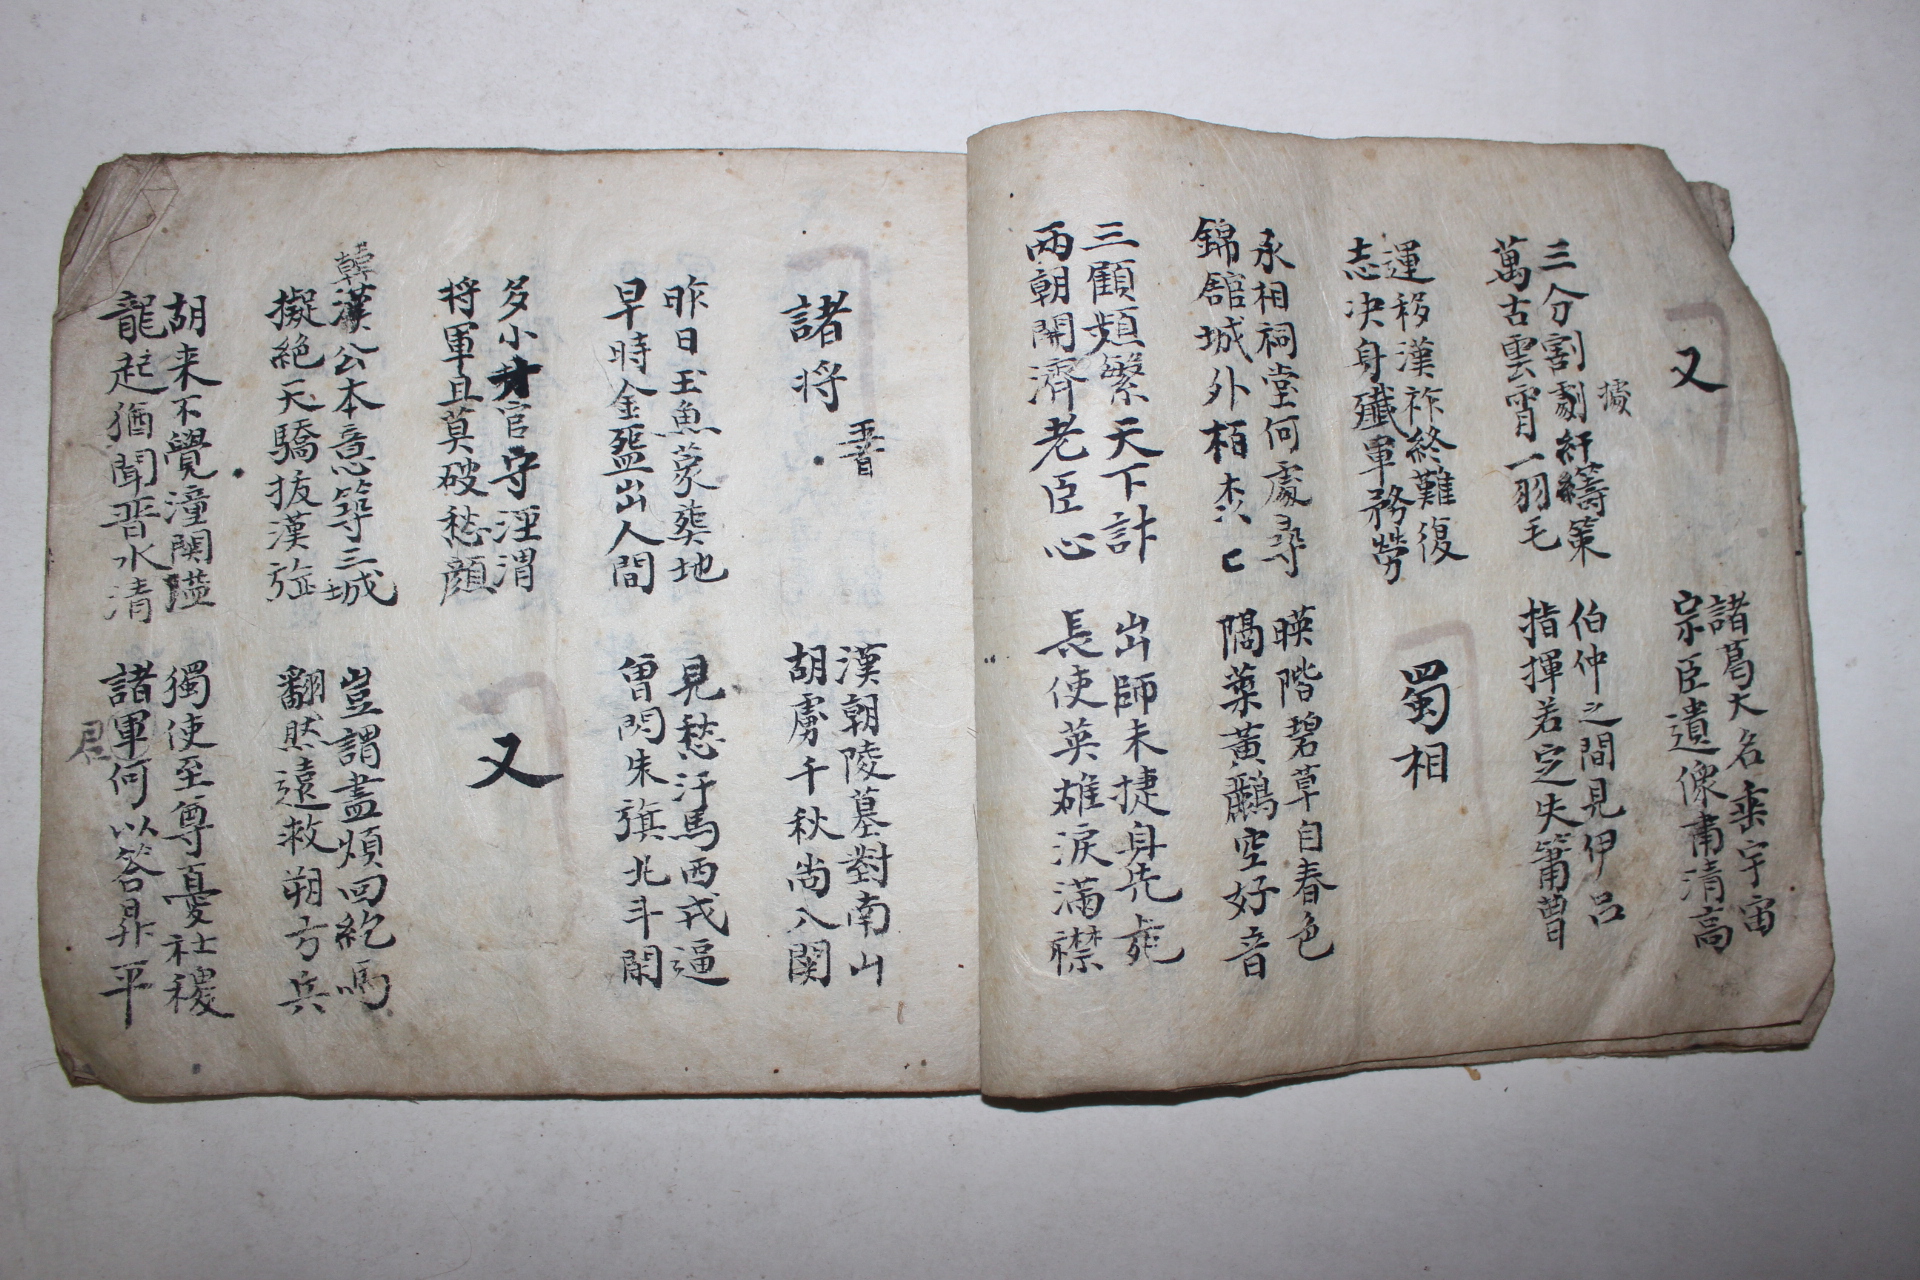 又
諸葛大名垂宇宙
宗臣遺像肅清高
據
三分割劇紆籌策
萬古雲霄一羽毛
伯仲之間見伊呂
指揮若定失簫曹
運移漢祚終難復
志決身殲軍務勞
蜀相
丞相祠堂何處尋
錦舘城外栢森〻
暎階碧草自春色
隔葉黃鸝空好音
三顧頻繁天下計
兩朝開濟老臣心
出師未捷身先死
長使英雄淚滿襟
諸將
五首
漢朝陵墓對南山
胡虜千秋尚入関
昨日玉魚蒙葬地
早時金盌出人間
見愁汗馬西戎逼
曾閃朱旗北斗閑
多小才官守涇渭
將軍且莫破愁顔
又
韓
漢公本意築三城
擬絶天驕拔漢旌
豈謂盡煩回紇馬
翻然遠救朔方兵
胡来不覺潼関隘
龍起猶聞晋水清
獨使至尊憂社稷
諸軍何以答昇平
君